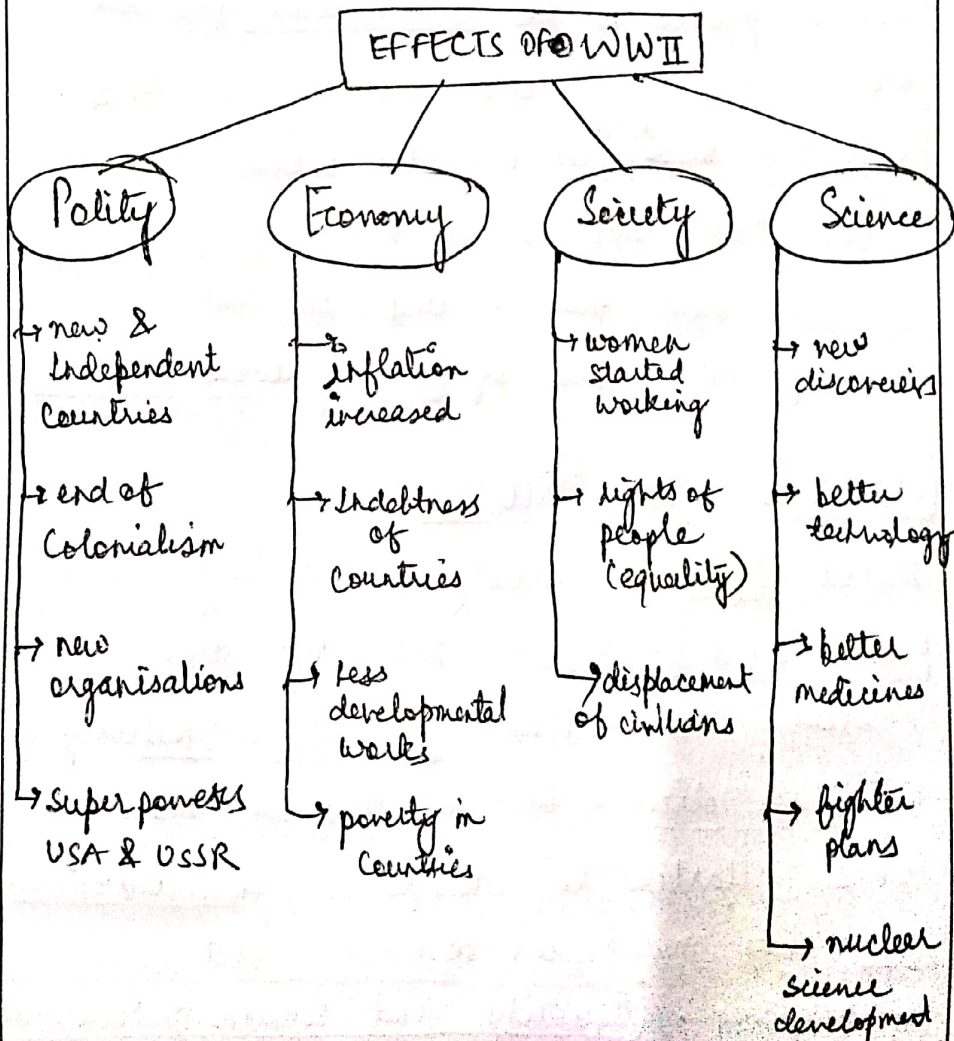 EFFECTS OF WW II
Polity
new &
Independent
Countries
end of
Colonialism
new
organisations
super powers
USA & USSR
Economy
inflation
increased
Indebtness
of
Countries
Less
developmental
works
poverty in
Countries
Society
women
started
working
rights of
people
(equality)
displacement
of civilians
Science
new
discovereis
better
technology
better
medicines
fighter
plans
nuclear
science
development